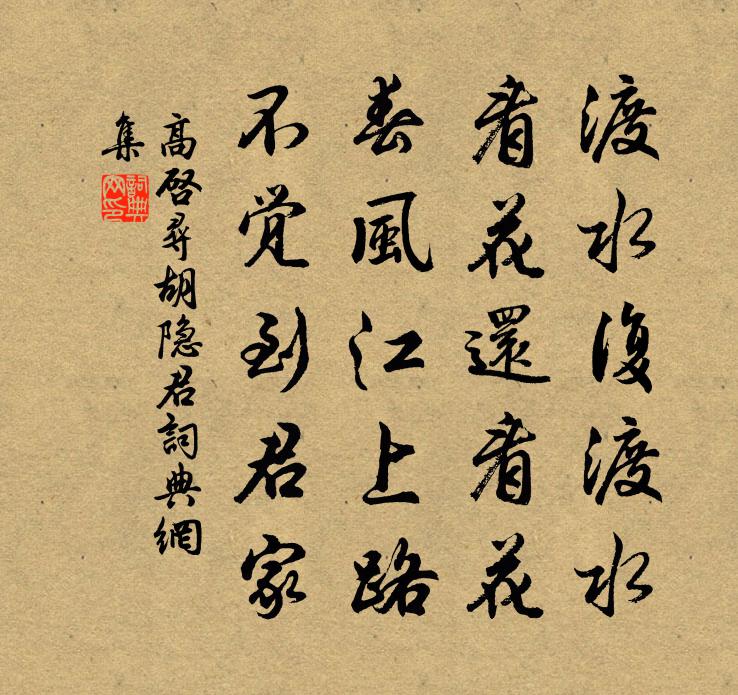 渡水復渡水
看花還看花
春風江上路
不覚到君家
高啓尋胡隐君詞典網
集
詞典网印